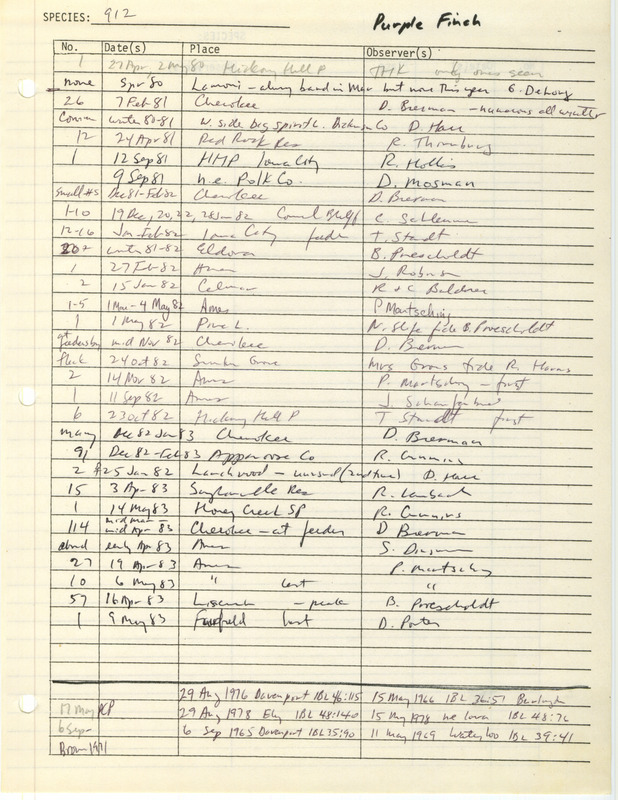 SPECIES: 912 Purple Finch
No. Date(s) Place Observer(s)
1 27 Apr, 2 May 80 Hickory Hill P THK only ones seen
none Spr '80 Lamoni - always band in Mar but none this year G. DeLong
26 7 Feb 81 Cherokee D. Bierman - numerous all winter
Common winter 80-81 W. side big spirit L. Dickinson Co D. Harr
12 24 Apr 81 Red Rock Res R. Thornburg
1 12 Sep 81 HMP Iowa City R. Hollis
9 Sep 81 n.e. Polk Co. D. Mosman
Small #s Dec 81-Feb 82 Cherokee D. Bierman
1-10 19 Dec, 20, 22, 28 Jan 82 Council Bluffs C. Schlemme
12-16 Jan-Feb 82 Iowa City feeder T. Staudt
winter 81-82 Eldora B. Proescholdt
1 27 Feb 82 Ames J. Robinson
2 15 Jan 82 Calmar R + C Baldner
1-5 1 Mar - 4 May 82 Ames P Martsching
1 1 May 82 Pine L. N. Slife fide B. Proescholdt
at feeders by mid Nov 82 Cherokee D. Bierman
flock 24 Oct 82 Grove Mrs Grous fide R.
2 14 Nov 82 Ames P. Martsching - first
1 11 Sep 82 Ames J.
6 23 Oct 82 Hickory Hill P T Staudt first
many Dec 82 Jan 83 Cherokee D. Bierman
91 Dec 82-Feb 83 Appanoose Co R. Cummins
2 25 Jan 82 Larchwood - unusual (2nd time) D. Harr
15 3 Apr 83 Saylorville Res R. Lambach
1 14 May 83 Honey Creek SP R. Cummins
114 mid Mar - mid Apr 83 Cherokee - at feeder D Bierman
abund early Apr 83 Ames S. Dinsmore
27 19 Apr 83 Ames P. Martsching
10 6 May 83 " last "
57 16 Apr 83 Liscomb - peak B. Proescholdt
1 9 May 83 Fairfield last D. Porter
29 Aug 1976 Davenport IBL 46:115 15 May 1966 IBL 36:51 Burlington
17 May PCP 29 Aug 1978 Ely IBL 48:140 15 May 1978 ne Iowa IBL 48:76
6 Sep 6 Sep 1965 Davenport IBL 35:90 11 May 1969 Waterloo IBL 39:41
Brown 1971